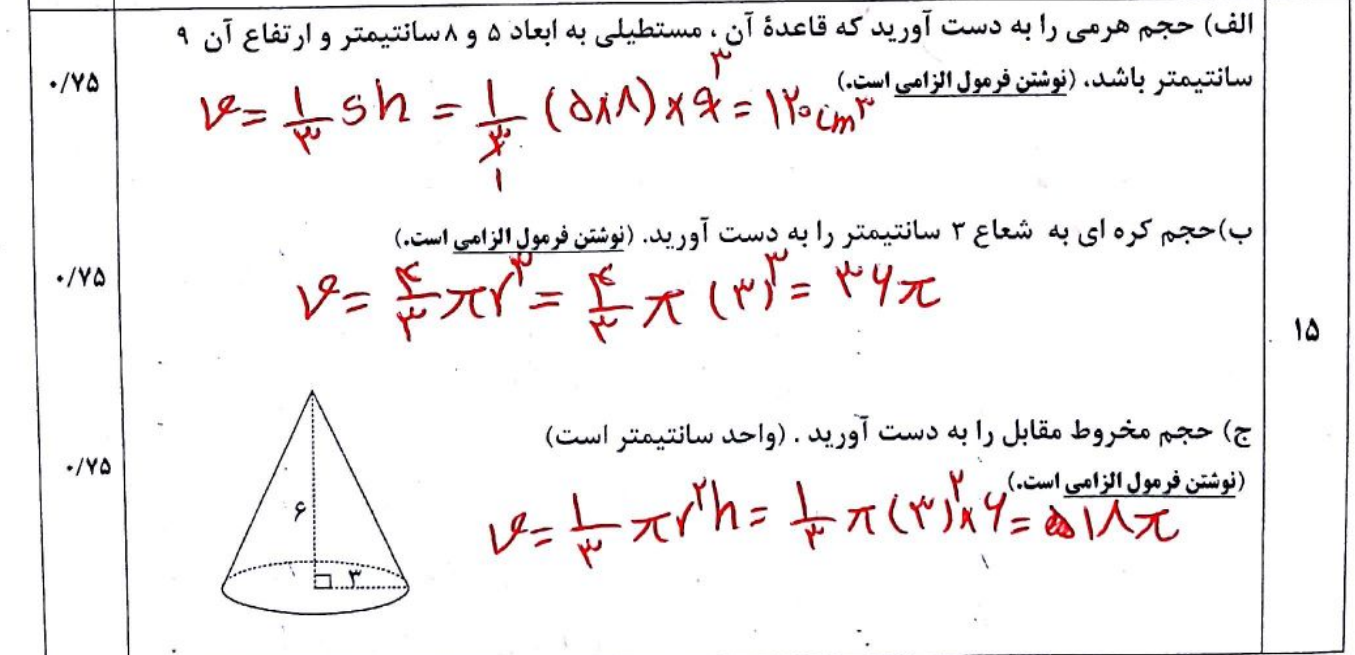 الف) حجم هرمی را به دست آورید که قاعدهٔ آن ، مستطیلی به ابعاد ۵ و ۸ سانتیمتر و ارتفاع آن ۹
سانتیمتر باشد. (نوشتن فرمول الزامی است.)
۰/۷۵
v = ۱/۳ sh = ۱/۳ (۵×۸) × ۹ = ۱۲۰ cm^۳
۳
۱
ب)حجم کره ای به شعاع ۳ سانتیمتر را به دست آورید. (نوشتن فرمول الزامی است.)
۰/۷۵
v = ۴/۳ πr^۳ = ۴/۳ π (۳)^۳ = ۳۶π
۱۵
ج) حجم مخروط مقابل را به دست آورید . (واحد سانتیمتر است)
۰/۷۵
(نوشتن فرمول الزامی است.)
v = ۱/۳ πr^۲h = ۱/۳ π(۳)^۲ × ۶ = ۱۸π
۶
۳